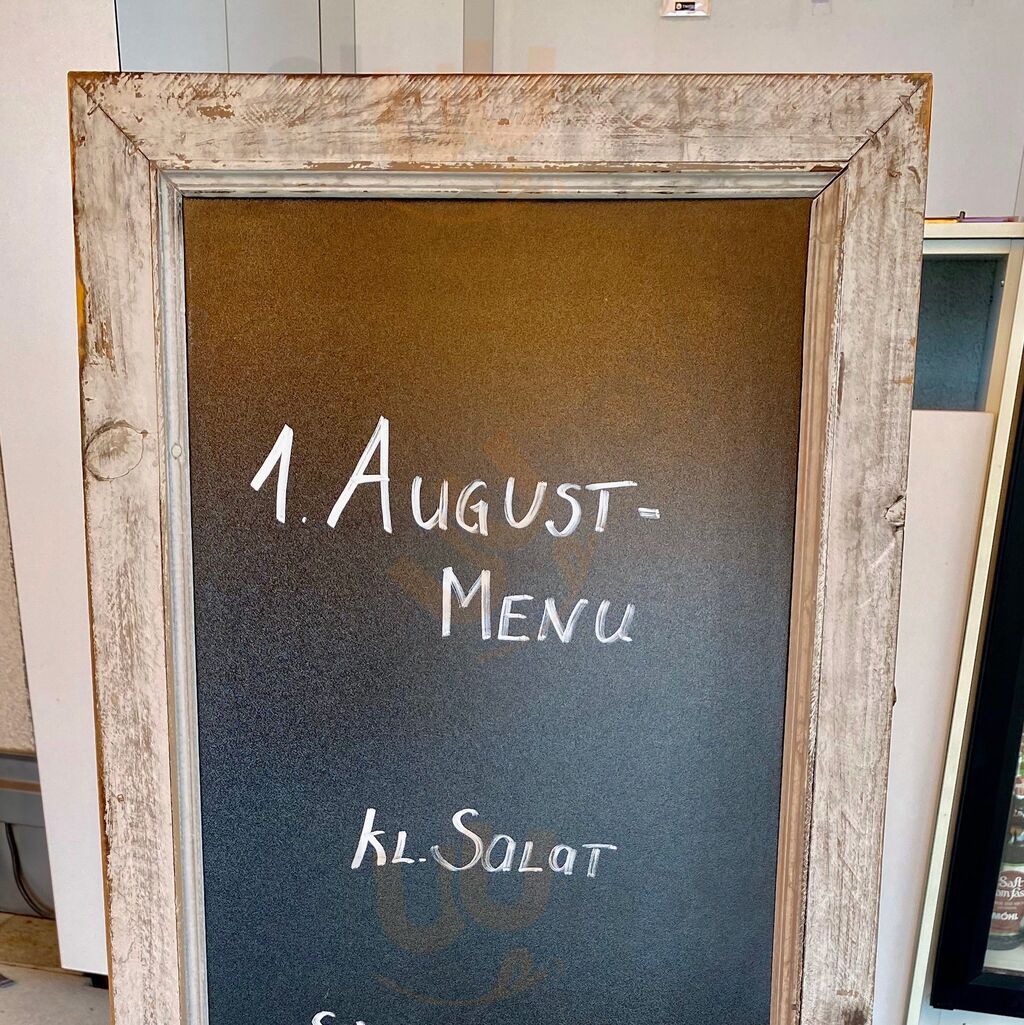 1. AUGUST-
MENU
KL. SALAT
Saft
MÖHL